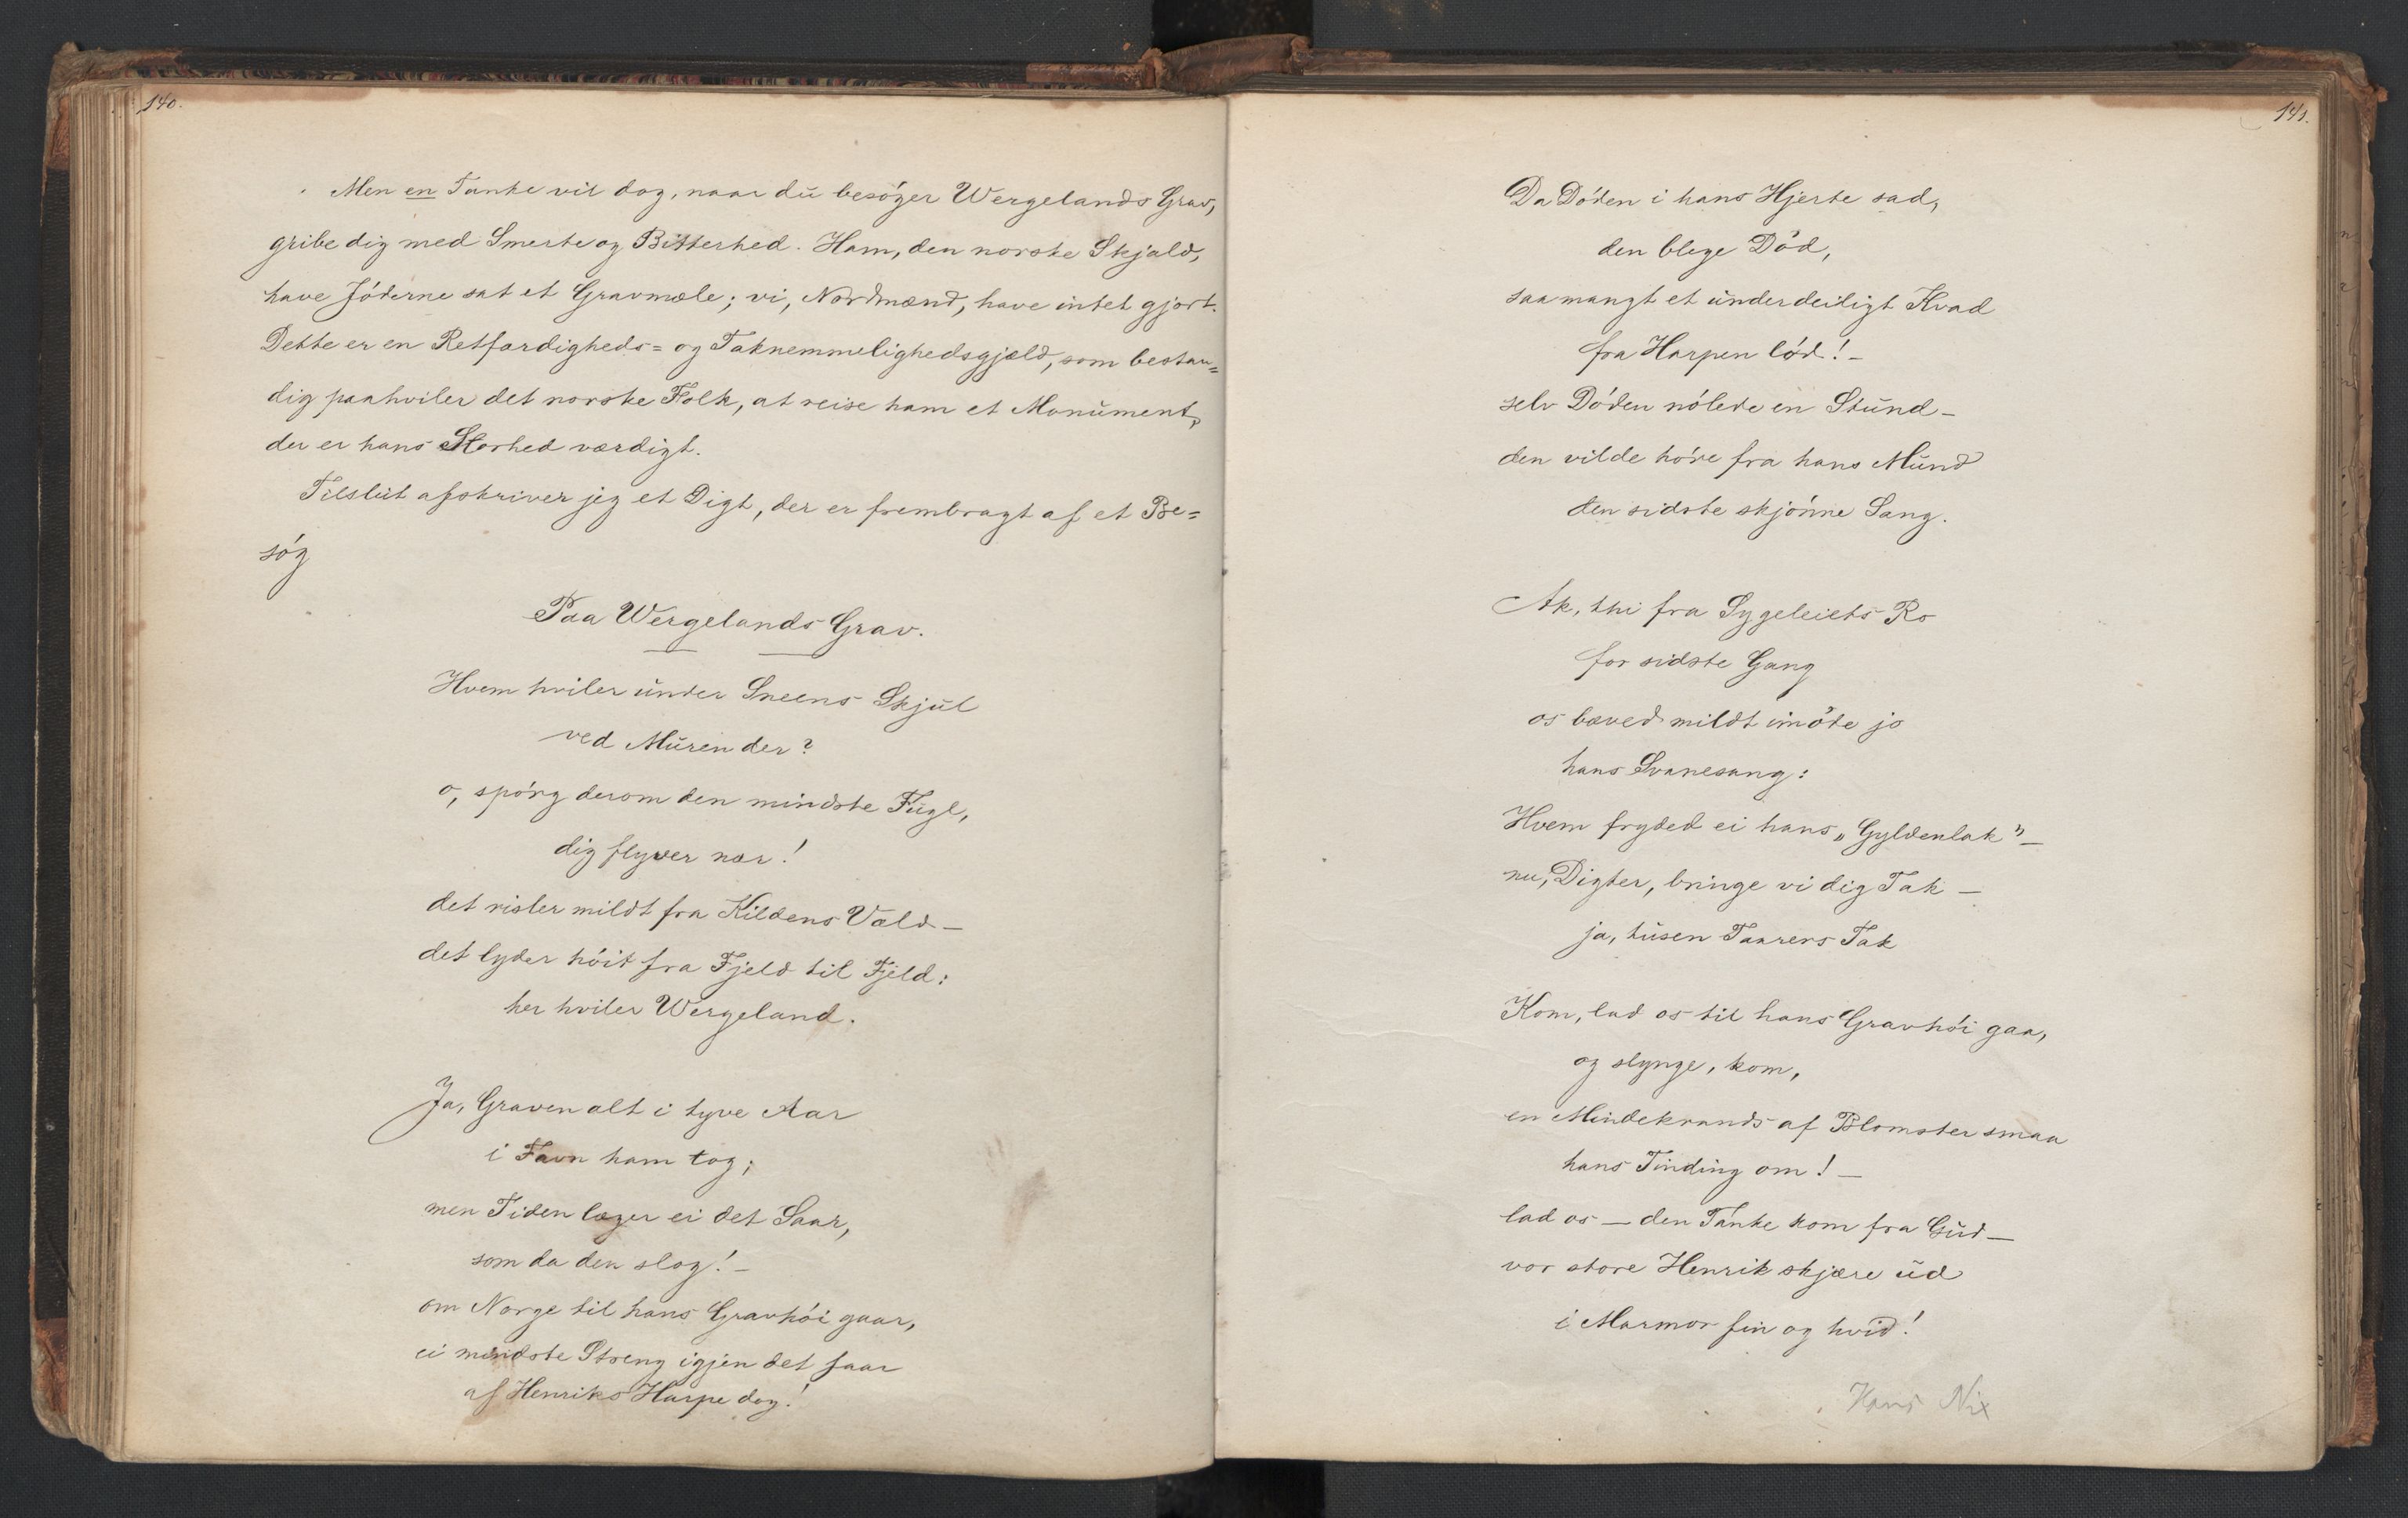 140.
Men en Tanke vil dog, naar du besöger Wergelands Grav,
gribe dig med Smerte og Bitterhed. Ham, den norske Skjald,
have Jöderne sat et Gravmæle; vi, Nordmænd, have intet gjort.
Dette er en Retfærdigheds= og Taknemmelighedsgjæld, som bestan=
dig paahviler det norske Folk, at reise ham et Monument,
der er hans Storhed værdigt.
Tilslut afskriver jeg et Digt, der er frembragt af et Be=
søg
Paa Wergelands Grav.
Hvem hviler under Sneens Skjul
ved Muren der?
o, spörg derom den mindste Fugl,
dig flyver nær!
det risler mildt fra Kildens Væld—
det lyder höit fra Fjeld til Fjeld:
her hviler Wergeland.
Ja, Graven alt i tyve Aar
i Favn ham tog;
men Tiden læger ei det Saar,
som da den slog!—
om Norge til hans Gravhöi gaar,
ei mindste Streng igjen det faar
af Henriks Harpe dog!
141.
Da Döden i hans Hjerte sad,
den blege Död,
saamangt et underdeiligt Kvad
fra Harpen löd!—
selv Döden nölede en Stund—
den vilde höre fra hans Mund
den sidste skjönne Sang.
Ak, thi fra Sygeleiets Ro
for sidste Gang
os bæved mildt imöde jo
hans Svanesang:
Hvem fryded ei hans „Gyldenlak"—
nu, Digter, bringe vi dig Tak—
ja, tusen Taarers Tak
Kom, lad os til hans Gravhöi gaa,
og slynge, kom,
en Mindekrands af Blomster smaa
hans Tinding om!—
lad os—den Tanke kom fra Gud—
vor store Henrik skjære ud
i Marmor fin og hvid!
Hans Nix